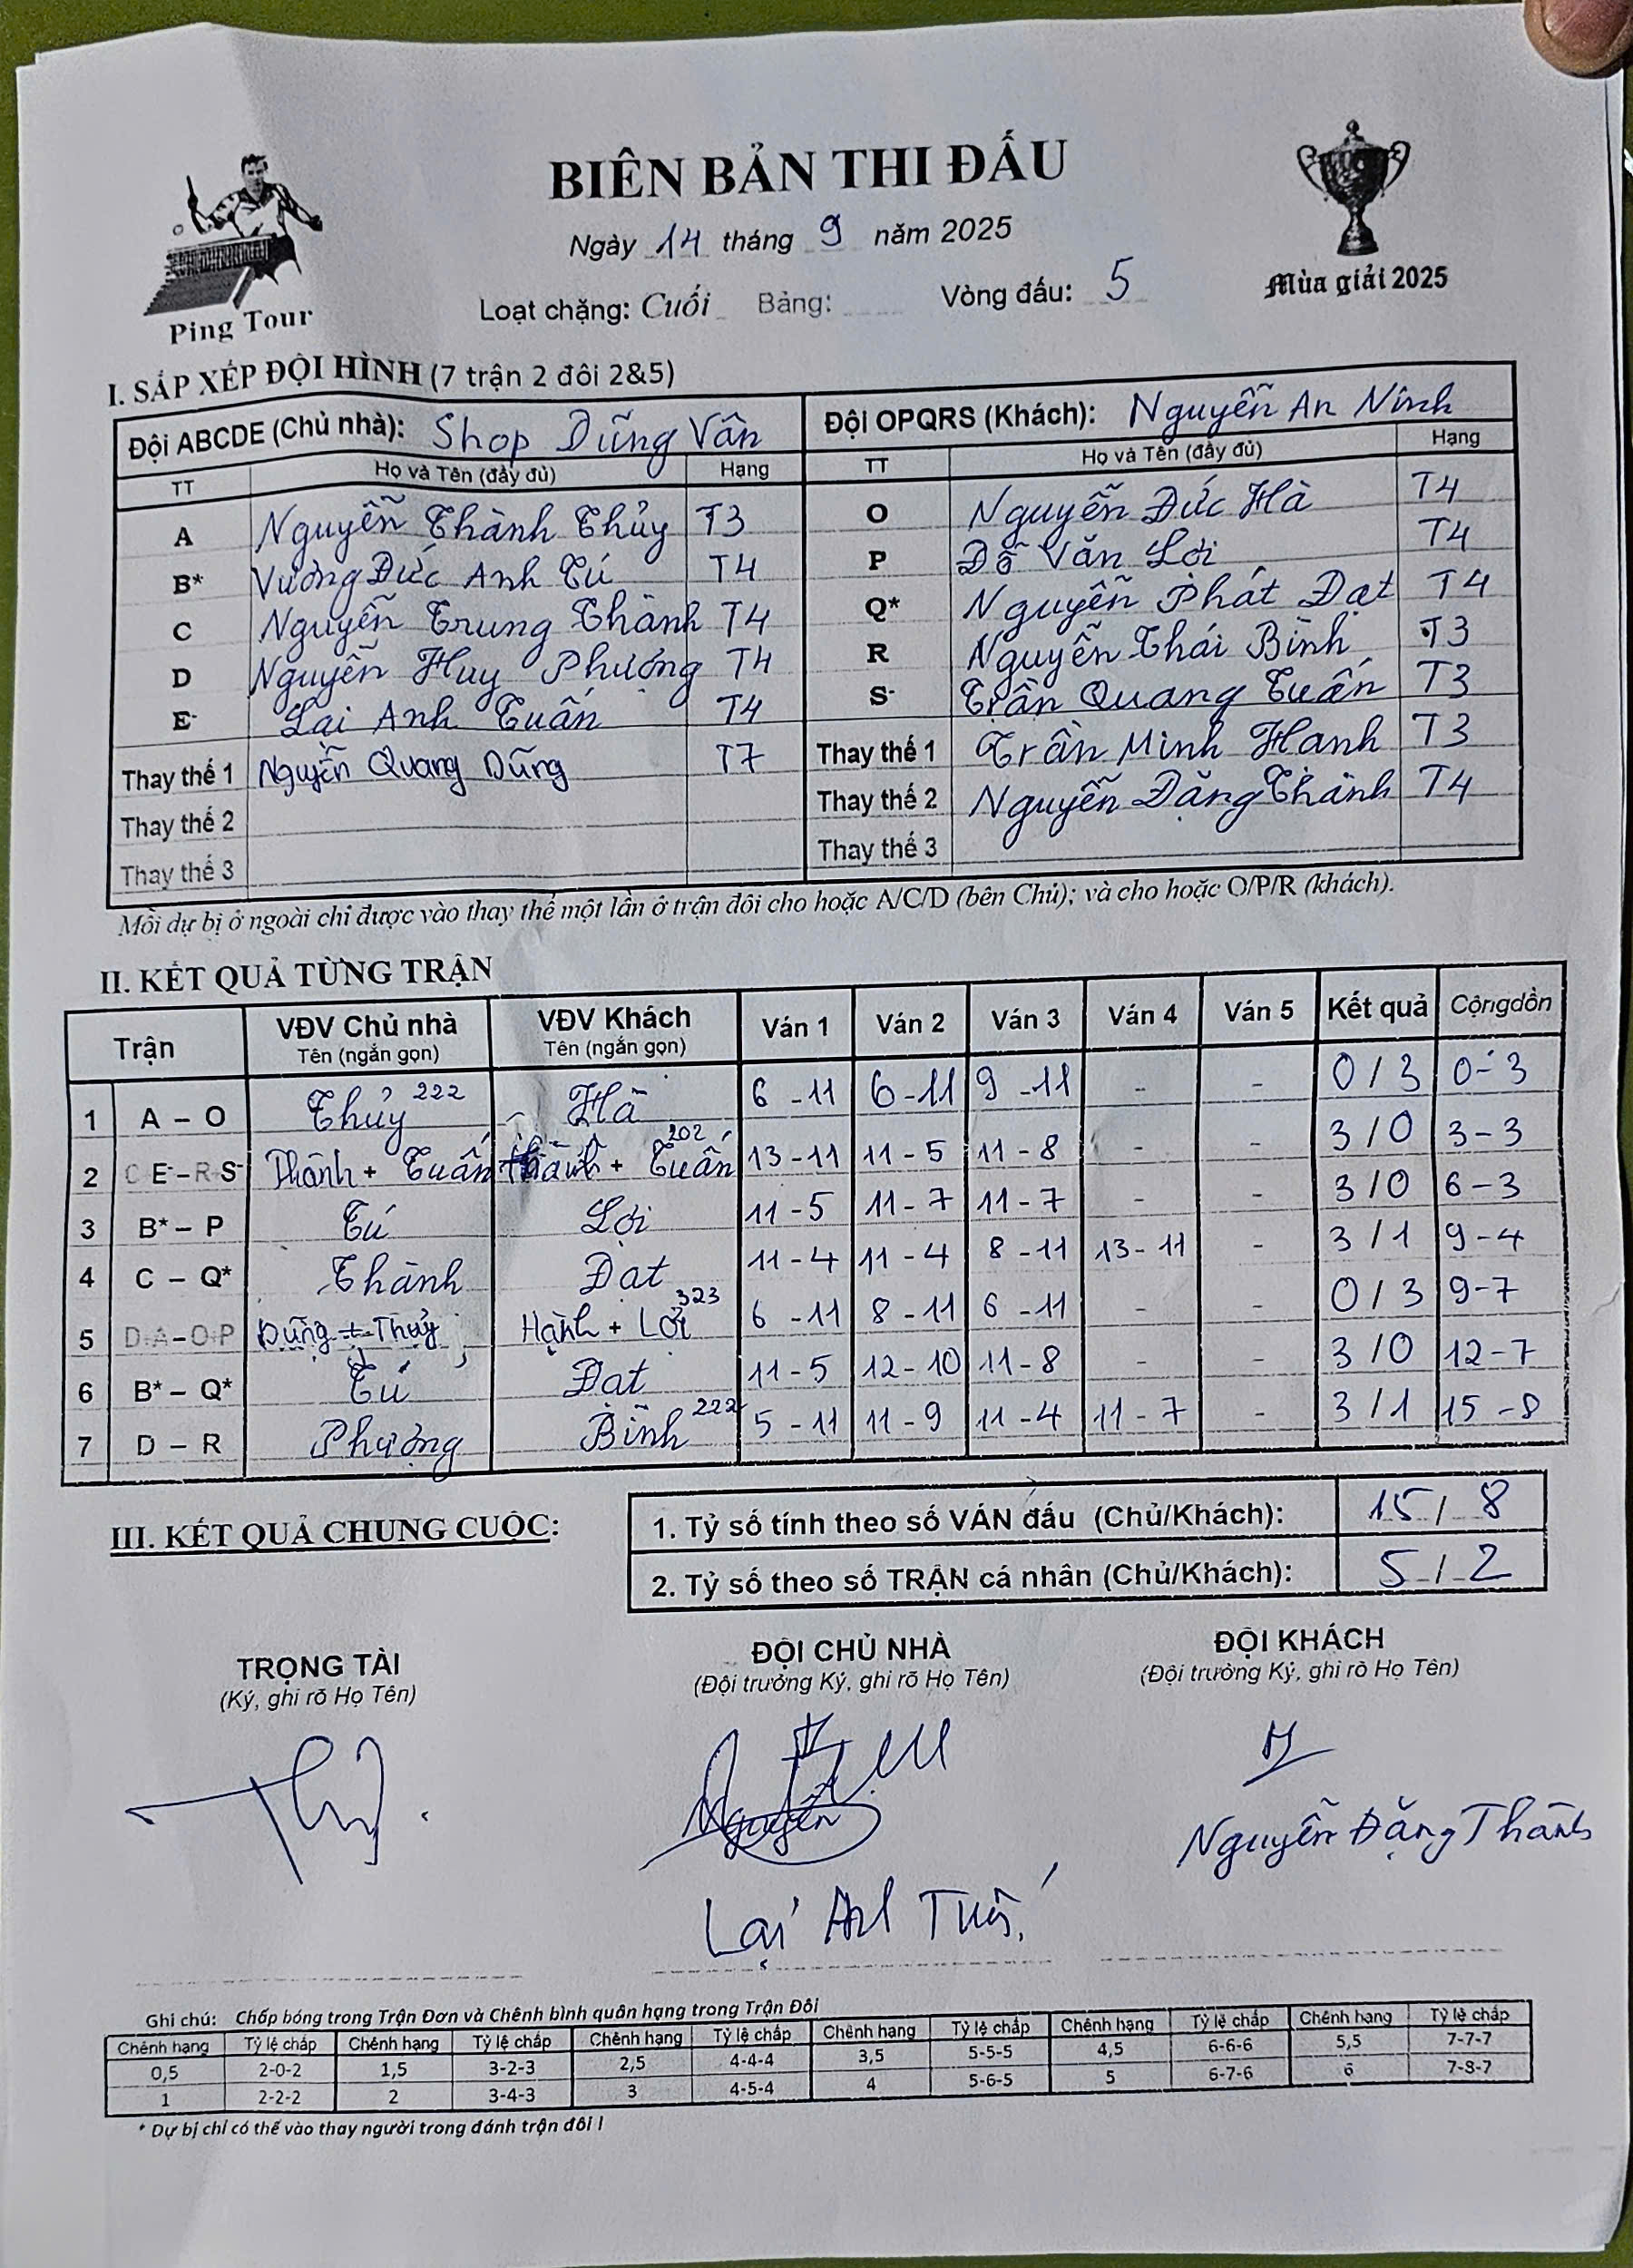 BIÊN BẢN THI ĐẤU
Ngày 14 tháng 9 năm 2025
Loạt chặng: Cuối Bảng: Vòng đấu: 5
Ping Tour
Mùa giải 2025
I. SẮP XẾP ĐỘI HÌNH (7 trận 2 đôi 2&5)
Đội ABCDE (Chủ nhà): Shop Dũng Vân Đội OPQRS (Khách): Nguyễn An Ninh
TT Họ và Tên (đầy đủ) Hạng TT Họ và Tên (đầy đủ) Hạng
A Nguyễn Thành Thủy T3 O Nguyễn Đức Hà T4
B* Vương Đức Anh Tú T4 P Đỗ Văn Lợi T4
C Nguyễn Trung Thành T4 Q* Nguyễn Phát Đạt T4
D Nguyễn Huy Phượng T4 R Nguyễn Thái Bình T3
E- Lại Anh Tuấn T4 S- Trần Quang Tuấn T3
Thay thế 1 Nguyễn Quang Dũng T7 Thay thế 1 Trần Minh Hạnh T3
Thay thế 2 Thay thế 2 Nguyễn Đăng Thành T4
Thay thế 3 Thay thế 3
Mỗi dự bị ở ngoài chỉ được vào thay thế một lần ở trận đôi cho hoặc A/C/D (bên Chủ); và cho hoặc O/P/R (khách).
II. KẾT QUẢ TỪNG TRẬN
Trận VĐV Chủ nhà Tên (ngắn gọn) VĐV Khách Tên (ngắn gọn) Ván 1 Ván 2 Ván 3 Ván 4 Ván 5 Kết quả Cộngdồn
1 A – O Thủy 222 Hà 6 - 11 6 - 11 9 - 11 - - 0 / 3 0 - 3
2 C E- – R S- Thành + Tuấn Thành + Tuấn 202 13 - 11 11 - 5 11 - 8 - - 3 / 0 3 - 3
3 B* – P Tú Lợi 11 - 5 11 - 7 11 - 7 - - 3 / 0 6 - 3
4 C – Q* Thành Đạt 11 - 4 11 - 4 8 - 11 13 - 11 - 3 / 1 9 - 4
5 D A – O P Dũng + Thủy Hạnh + Lợi 323 6 - 11 8 - 11 6 - 11 - - 0 / 3 9 - 7
6 B* – Q* Tú Đạt 11 - 5 12 - 10 11 - 8 - - 3 / 0 12 - 7
7 D – R Phượng Bình 222 5 - 11 11 - 9 11 - 4 11 - 7 - 3 / 1 15 - 8
III. KẾT QUẢ CHUNG CUỘC:
1. Tỷ số tính theo số VÁN đấu (Chủ/Khách): 15 / 8
2. Tỷ số theo số TRẬN cá nhân (Chủ/Khách): 5 / 2
TRỌNG TÀI ĐỘI CHỦ NHÀ ĐỘI KHÁCH
(Ký, ghi rõ Họ Tên) (Đội trưởng Ký, ghi rõ Họ Tên) (Đội trưởng Ký, ghi rõ Họ Tên)
Nguyễn
Nguyễn Đăng Thành
Lại Anh Tuấn
Ghi chú: Chấp bóng trong Trận Đơn và Chênh bình quân hạng trong Trận Đôi
Chênh hạng Tỷ lệ chấp Chênh hạng Tỷ lệ chấp Chênh hạng Tỷ lệ chấp Chênh hạng Tỷ lệ chấp Chênh hạng Tỷ lệ chấp Chênh hạng Tỷ lệ chấp
0,5 2-0-2 1,5 3-2-3 2,5 4-4-4 3,5 5-5-5 4,5 6-6-6 5,5 7-7-7
1 2-2-2 2 3-4-3 3 4-5-4 4 5-6-5 5 6-7-6 6 7-8-7
* Dự bị chỉ có thể vào thay người trong đánh trận đôi !